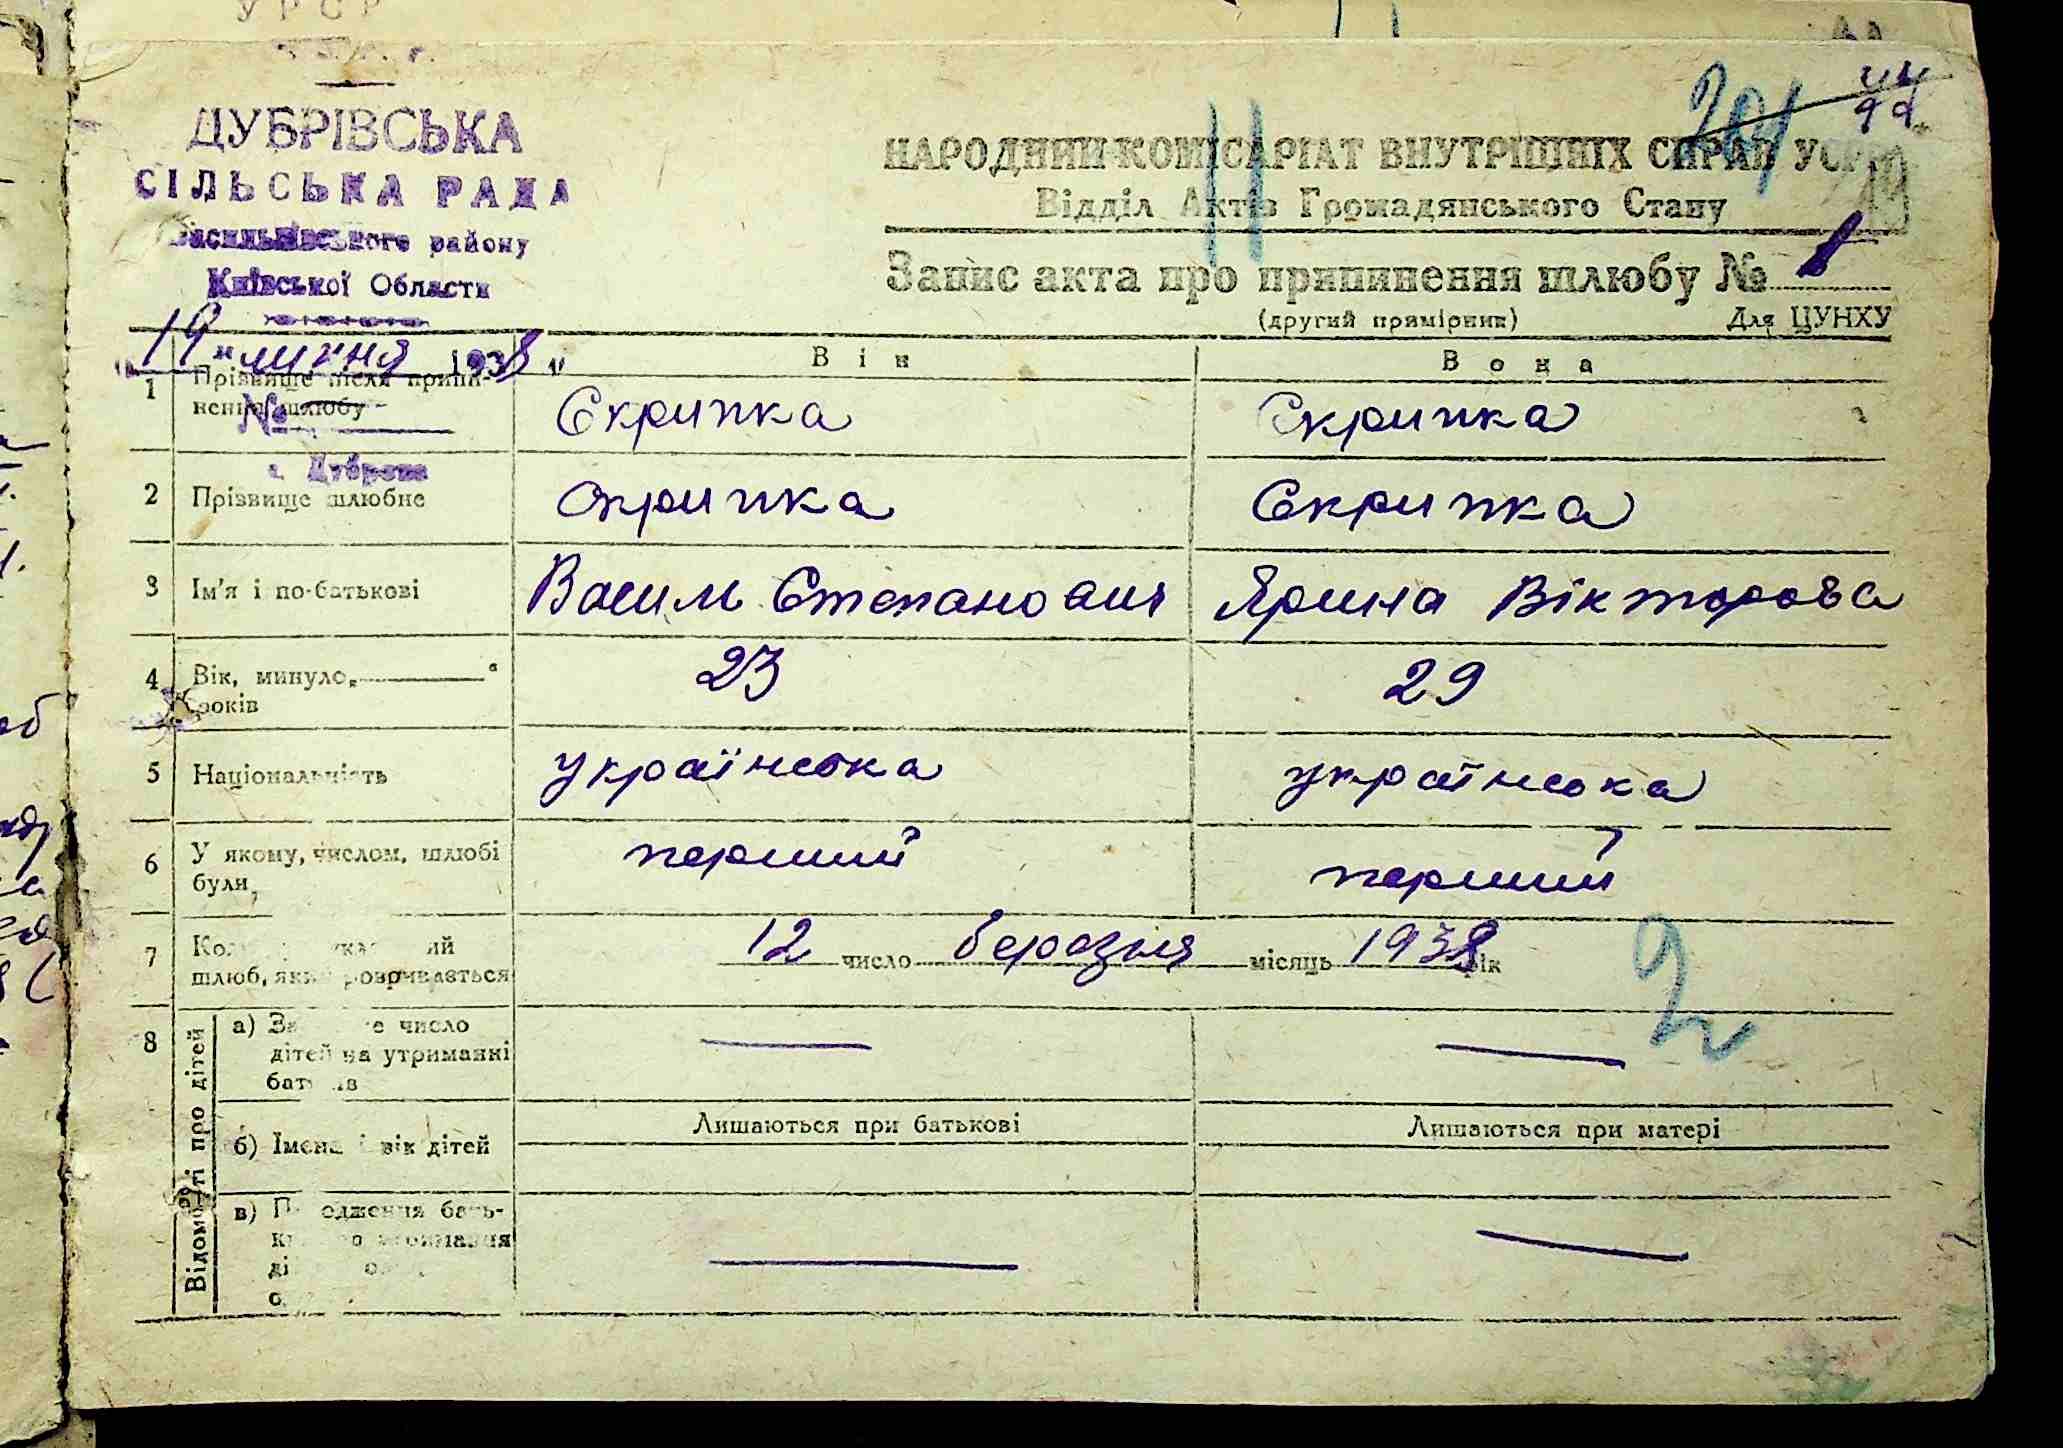 УРСР
ДУБРІВСЬКА
СІЛЬСЬКА РАДА
Васильківського району
Київської Области
19 " липня 1938
№
с. Дуброва
204
44
НАРОДНИЙ КОМІСАРІАТ ВНУТРІШНІХ СПРАВ УСРР
Відділ Актів Громадянського Стану
Запис акта про припинення шлюбу № 1
(другий примірник) Для ЦУНХУ
Він Вона
1 Прізвище після припинення шлюбу Скрипка Скрипка
2 Прізвище шлюбне Скрипка Скрипка
3 Ім'я і по-батькові Василь Степанович Ярина Вікторова
4 Вік, минуло „ “ років 23 29
5 Національність українська українська
6 У якому, числом, шлюбі були перший перший
7 шлюб, який розривається 12 число березня місяць 1938 рік
2
8 Відомості про дітей
а) число
дітей на утриманні
батьків
Лишаються при батькові Лишаються при матері
б) Імена і вік дітей
в)